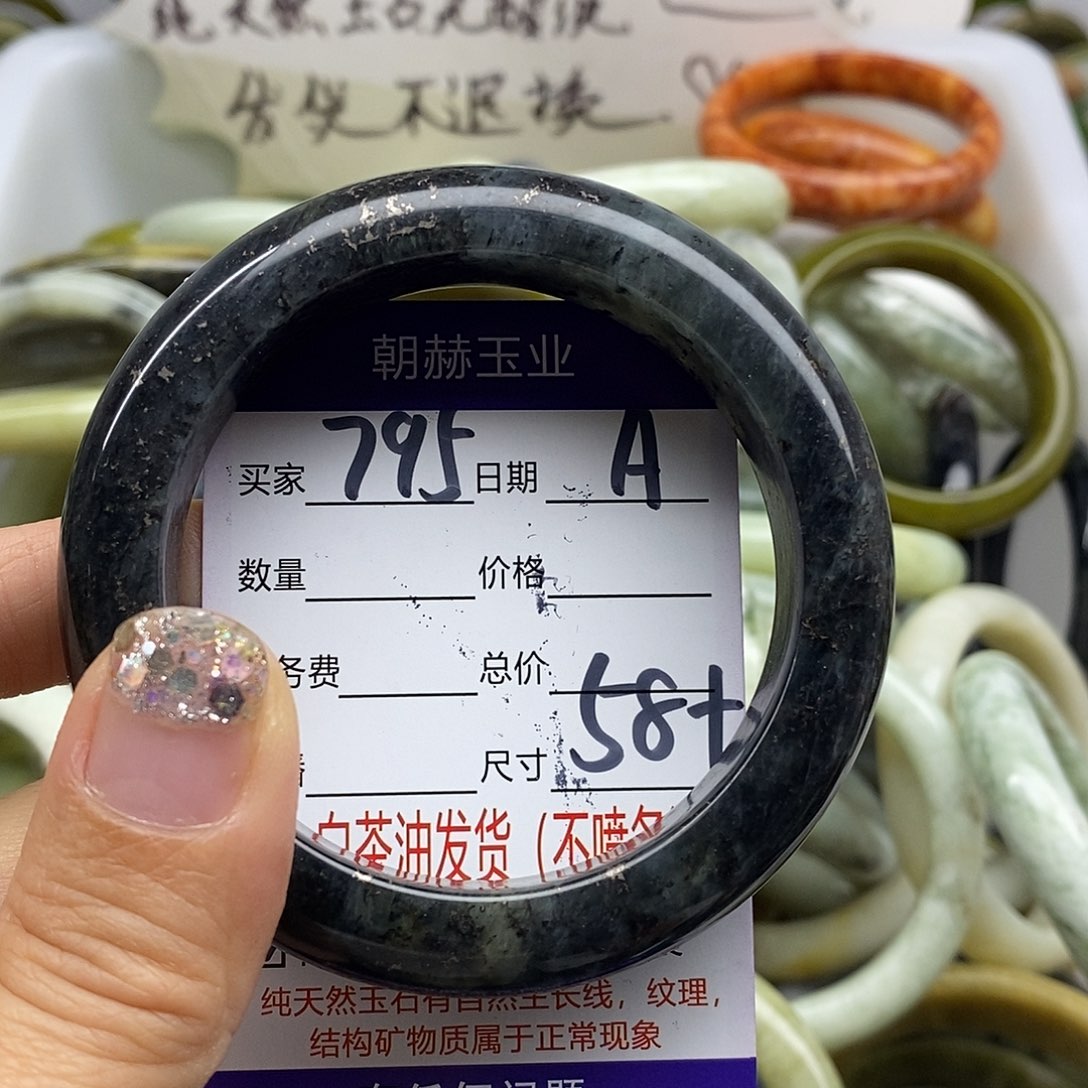 纯天然玉石无
售出不退换
朝赫玉业
买家 795 日期 A
数量 价格
务费 总价
尺寸 58+
白茶油发货（不喷
纯天然玉石有自然生长线，纹理，
结构矿物质属于正常现象